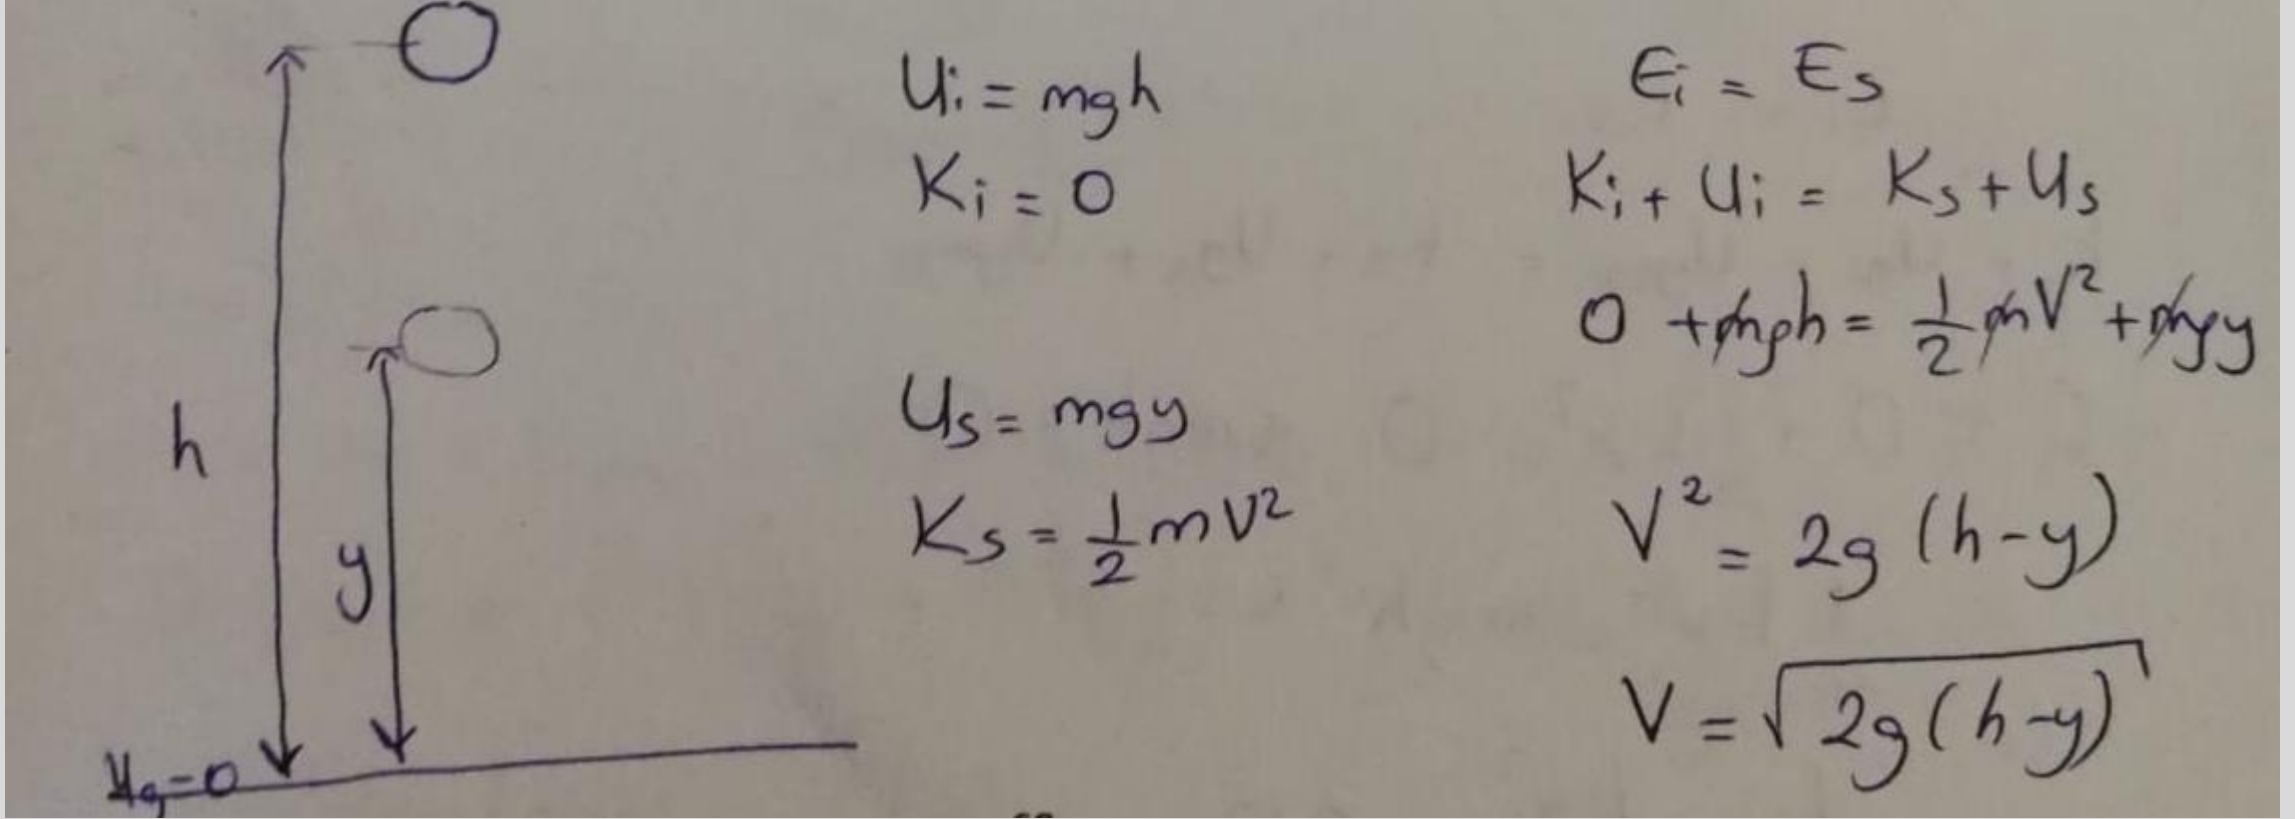 h
y
Ug=0
Ui = mgh
Ki = 0
Us = mgy
Ks = 1/2 mV²
Ei = Es
Ki + Ui = Ks + Us
0 + mgh = 1/2 mV² + mgy
V² = 2g (h-y)
V = √2g(h-y)